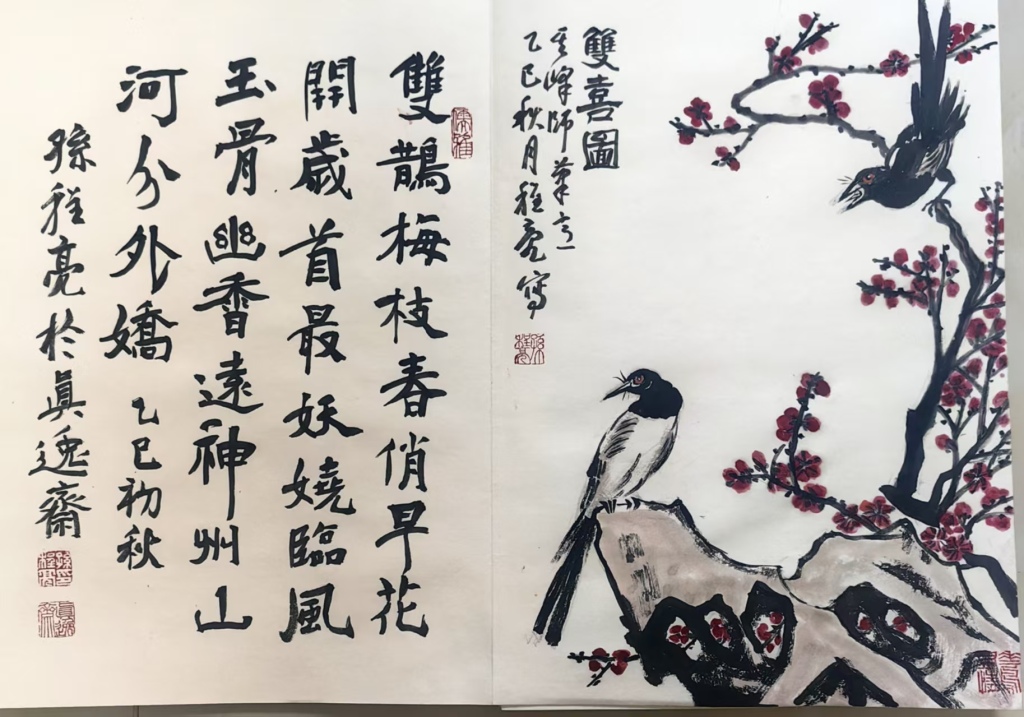 雙喜圖
峰師筆意
乙巳秋月程亮寫
雙鵲梅枝春俏早花
開歲首最妖嬈臨風
玉骨幽香遠神州山
河分外嬌 乙巳初秋
孫程亮於眞逸齋